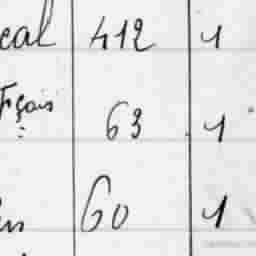 cal 412 1
çais 63 1
60 1